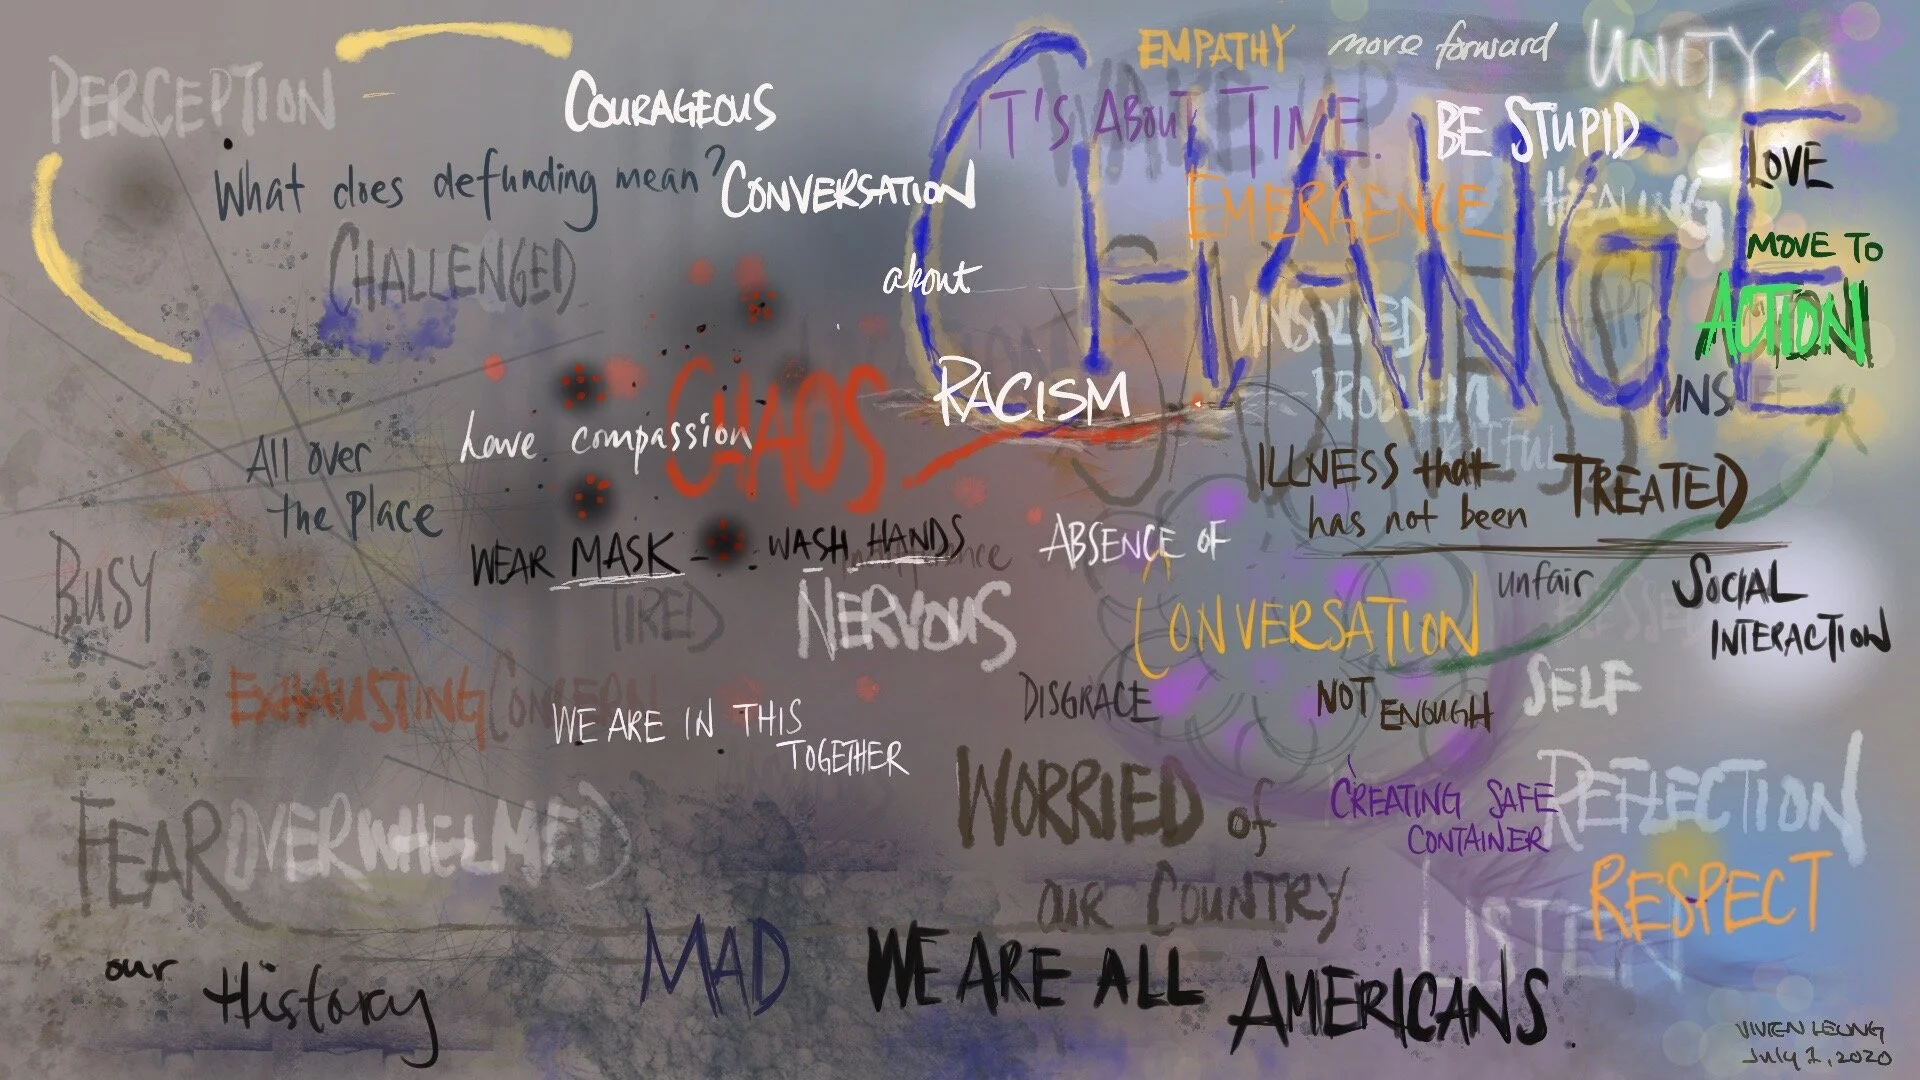 PERCEPTION
COURAGEOUS
EMPATHY
move forward
UNITY
WAKE UP
IT'S ABOUT TIME.
BE STUPID
CHANGE
LOVE
What does defunding mean?
CONVERSATION
EMERGENCE
HEALING
CHALLENGED
about
MOVE TO
ACTION
UNSOLVED
PROBLEM
RACISM
CHAOS
have compassion
All over
the Place
ILLNESS that
has not been
TREATED
WEAR MASK - WASH HANDS
ABSENCE OF
CONVERSATION
unfair
SOCIAL
INTERACTION
BUSY
TIRED
NERVOUS
EXHAUSTING
CONCERN
WE ARE IN THIS
TOGETHER
DISGRACE
NOT
ENOUGH
SELF
REFLECTION
WORRIED of
OUR COUNTRY
CREATING SAFE
CONTAINER
FEAR
OVERWHELMED
RESPECT
LISTEN
our
History
MAD
WE ARE ALL
AMERICANS.
VIVIEN LEUNG
July 1, 2020